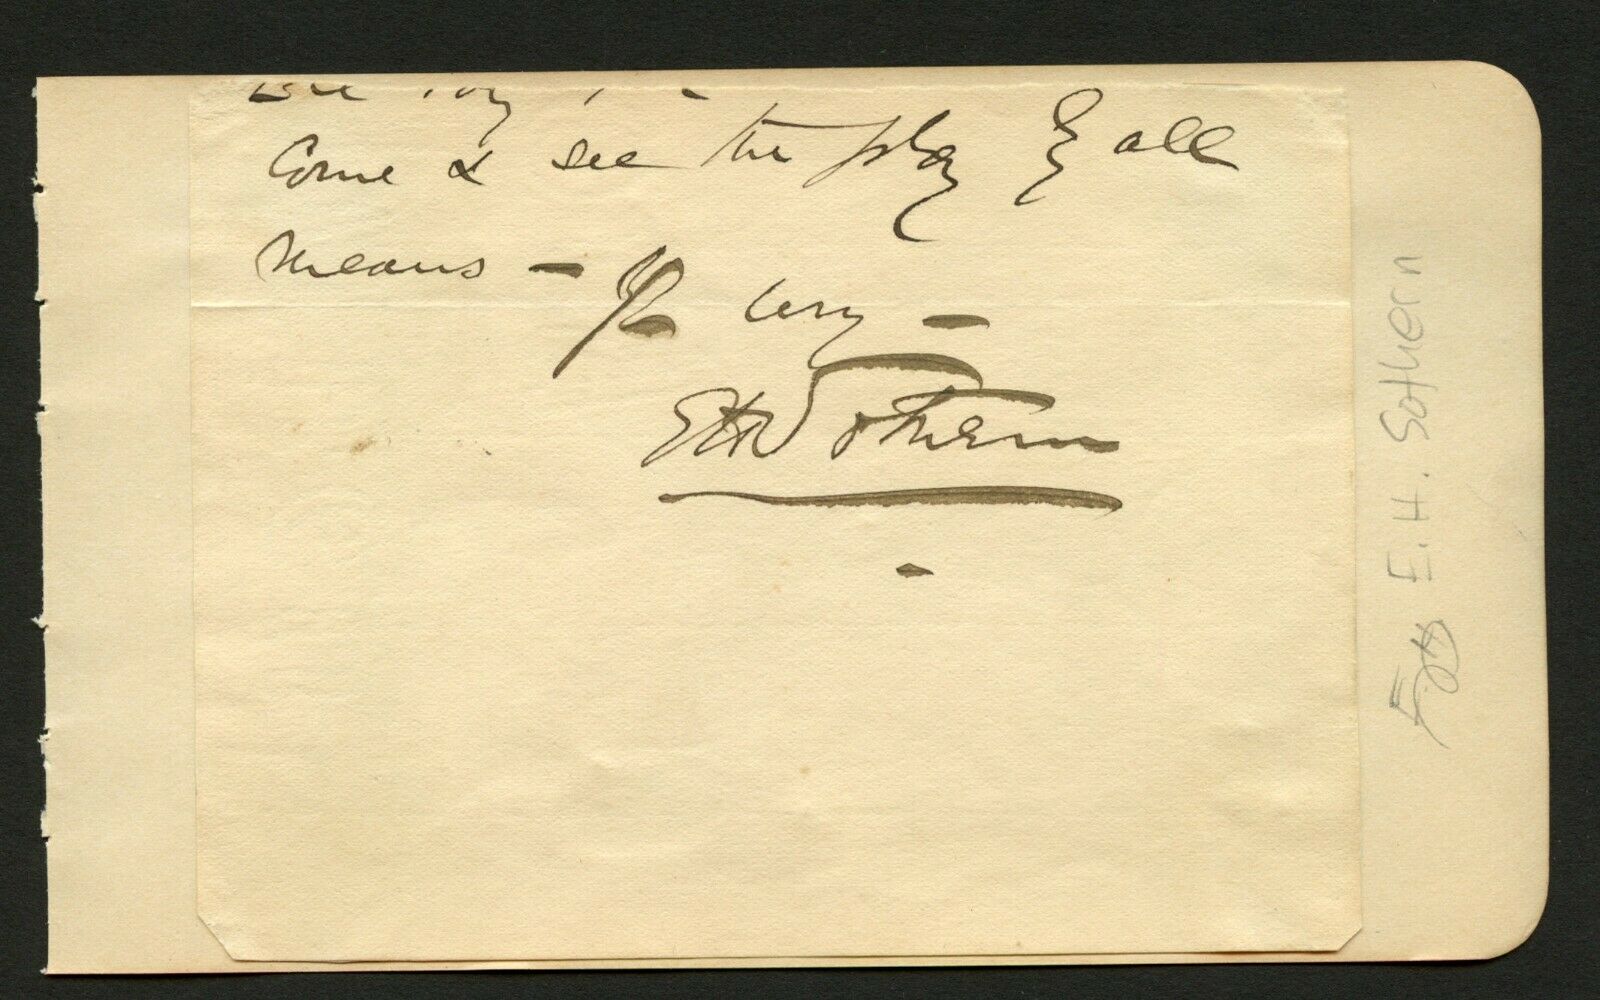 Come & see the play by all
means - Yrs very -
EHSothern
E.H. Sothern